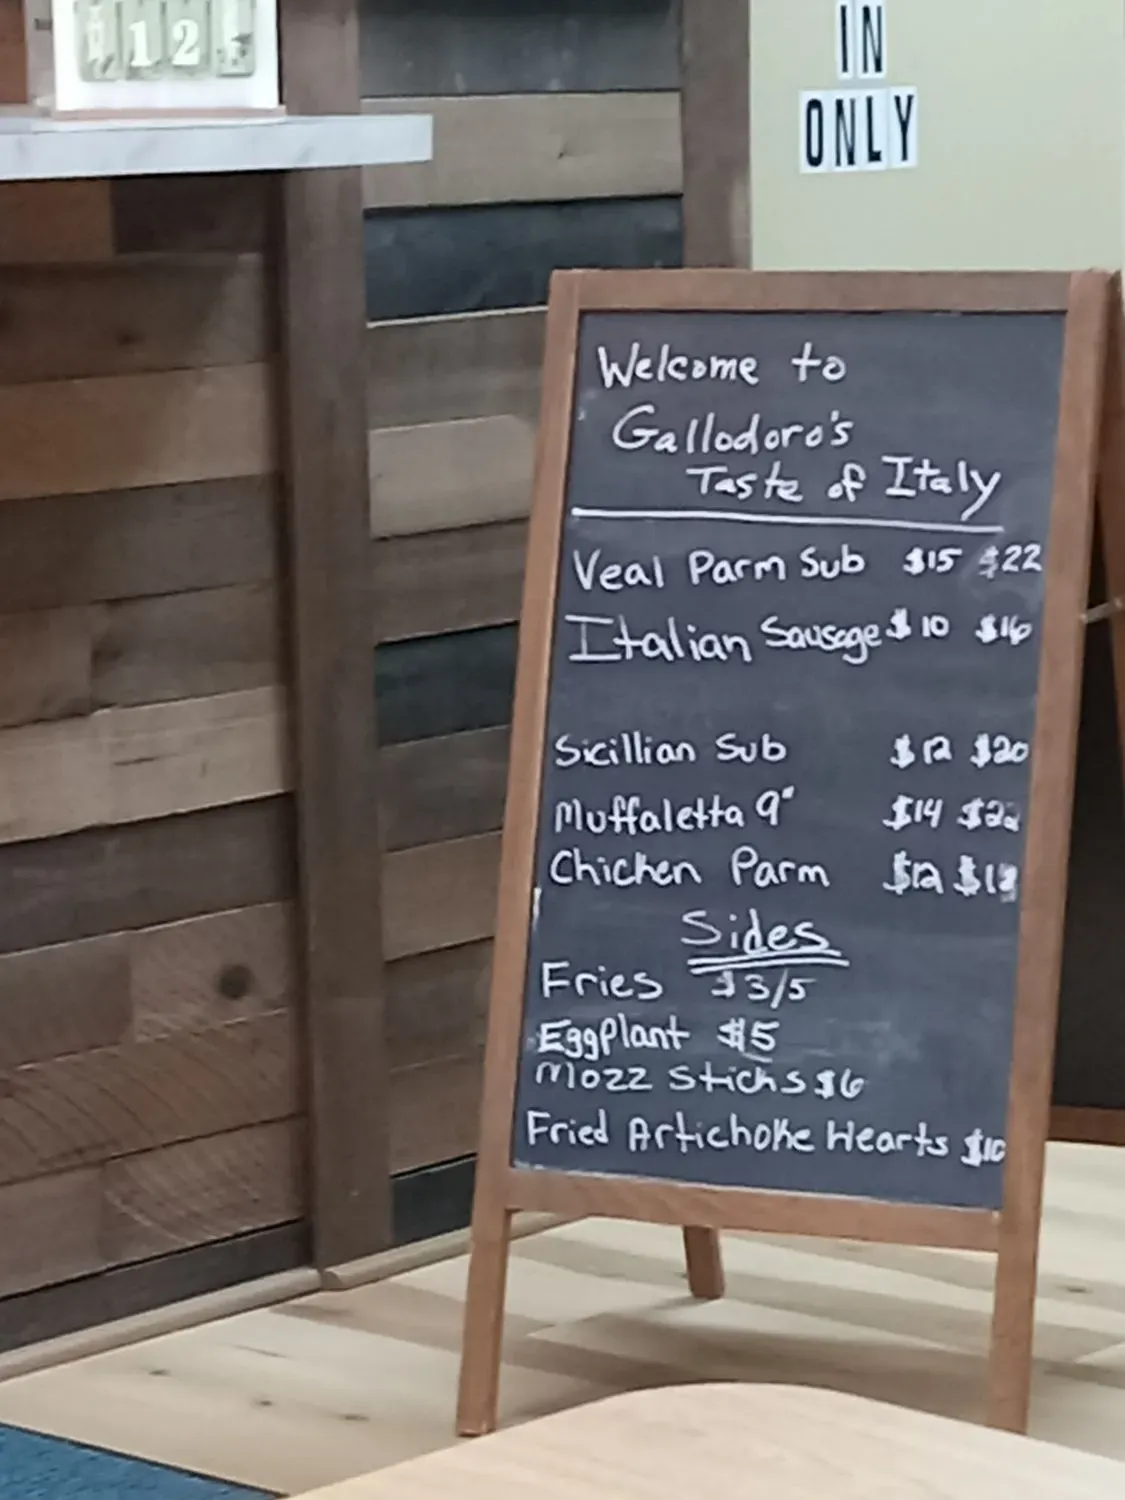 12
IN
ONLY
Welcome to
Gallodoro's
Taste of Italy
Veal Parm Sub $15 $22
Italian Sausage $10 $16
Sicillian Sub $12 $20
Muffaletta 9" $14 $22
Chicken Parm $12 $18
Sides
Fries $3/5
EggPlant $5
Mozz Sticks $6
Fried Artichoke Hearts $10